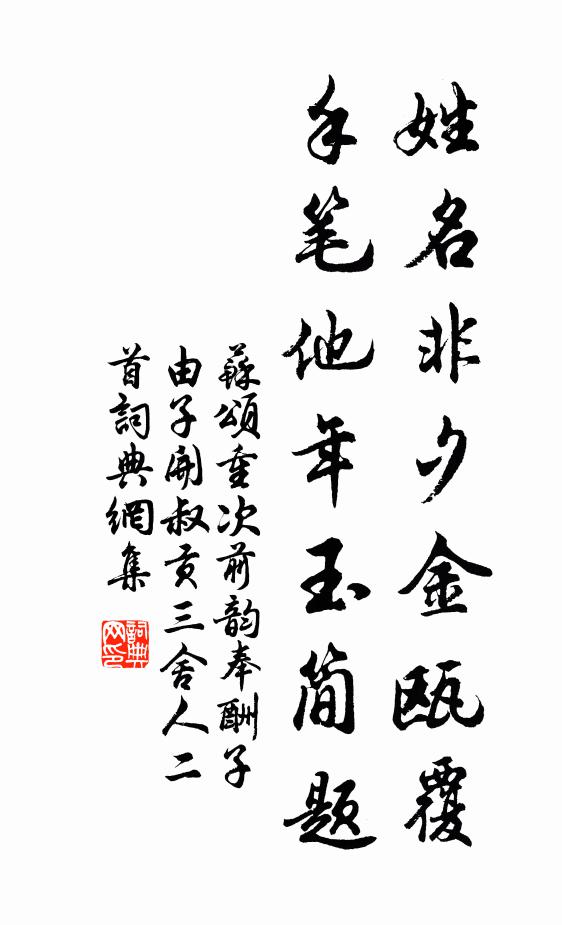 姓名非夕金瓯覆
手笔他年玉简题
蘇頌重次前韵奉酬子
由子開叔貢三舍人二
首詞典網集
詞典网印